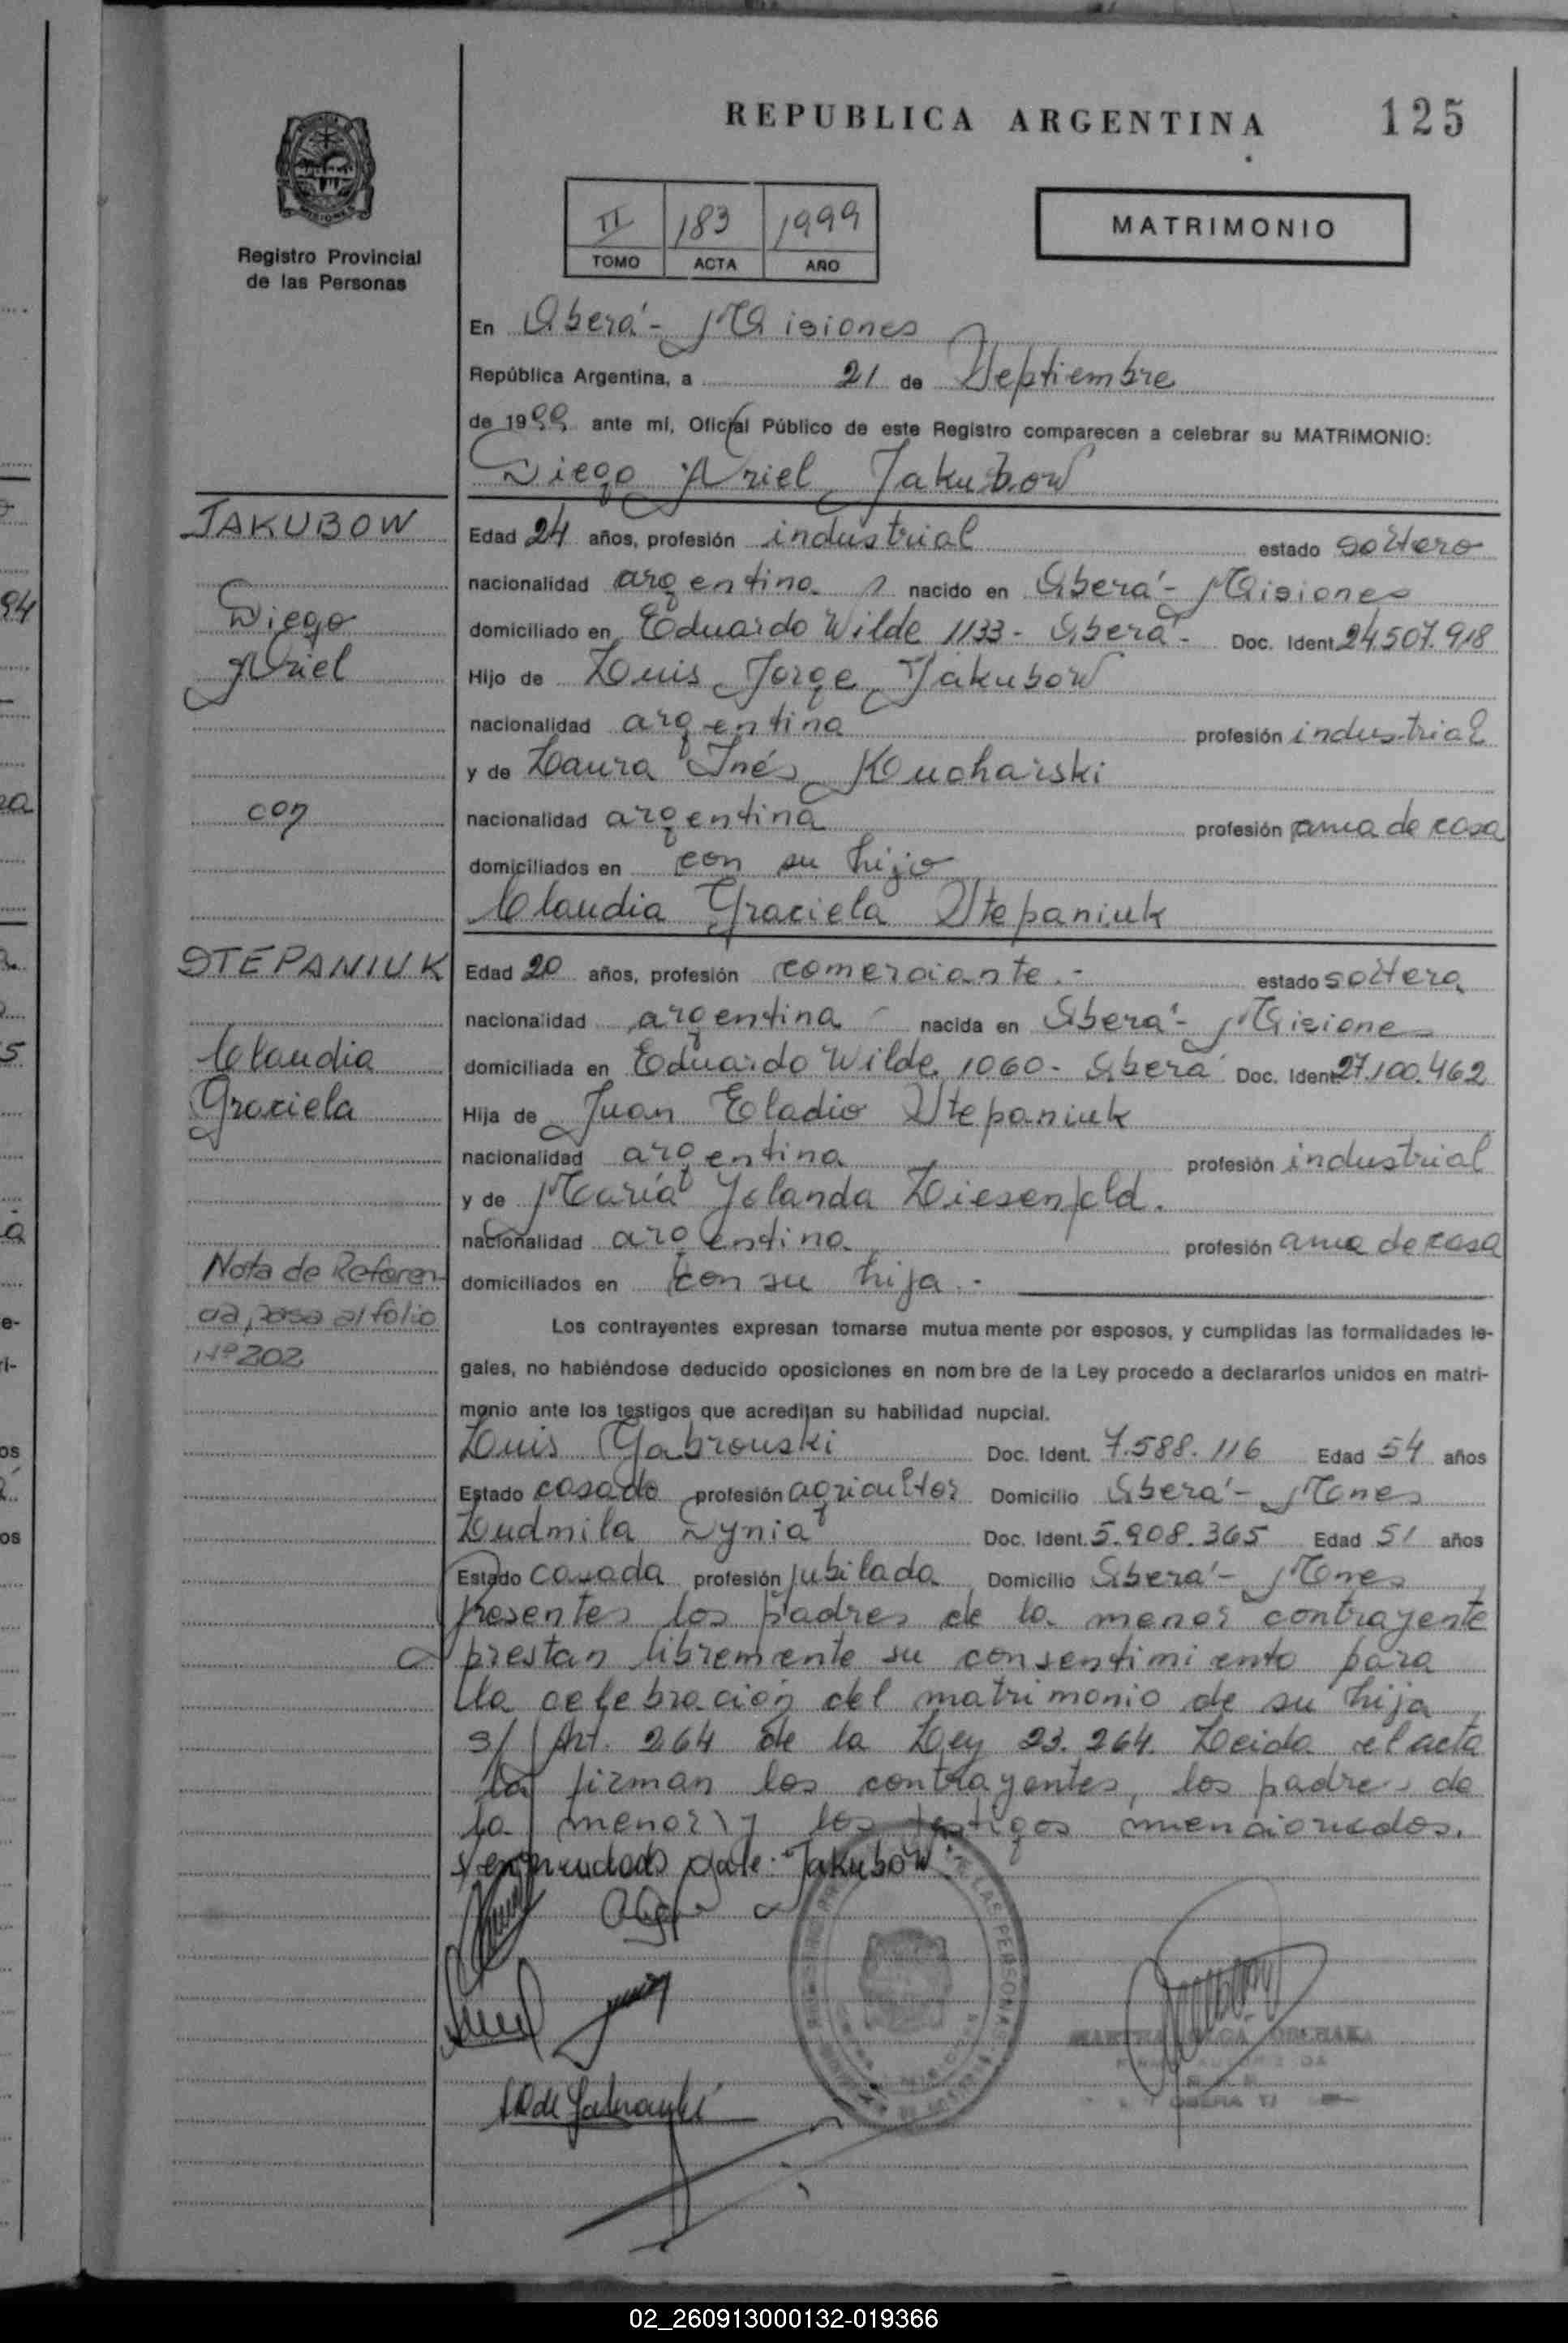 REPUBLICA ARGENTINA 125
MISIONES
Registro Provincial
de las Personas
II 183 1999
TOMO ACTA AÑO
MATRIMONIO
En Oberá - Misiones
República Argentina, a 21 de Septiembre
de 1999 ante mí, Oficial Público de este Registro comparecen a celebrar su MATRIMONIO:
Diego Ariel Jakubow
JAKUBOW
Diego
Ariel
con
Edad 24 años, profesión industrial estado soltero
nacionalidad argentina nacido en Oberá - Misiones
domiciliado en Eduardo Wilde 1133 - Oberá - Doc. Ident. 24.507.918
Hijo de Luis Jorge Jakubow
nacionalidad argentina profesión industrial
y de Laura Inés Kucharski
nacionalidad argentina profesión ama de casa
domiciliados en con su hijo
Claudia Graciela Stepaniuk
STEPANIUK
Claudia
Graciela
Edad 20 años, profesión comerciante.- estado soltera
nacionalidad argentina nacida en Oberá - Misiones
domiciliada en Eduardo Wilde 1060 - Oberá Doc. Ident. 27.100.462
Hija de Juan Eladio Stepaniuk
nacionalidad argentina profesión industrial
y de María Yolanda Diesenfeld.
nacionalidad argentina profesión ama de casa
domiciliados en con su hija.-
Nota de Referen-
cia, pasa al folio
Nº 202
Los contrayentes expresan tomarse mutua mente por esposos, y cumplidas las formalidades le-
gales, no habiéndose deducido oposiciones en nom bre de la Ley procedo a declararlos unidos en matri-
monio ante los testigos que acreditan su habilidad nupcial.
Luis Gabrouski Doc. Ident. 7.588.116 Edad 54 años
Estado casado profesión agricultor Domicilio Oberá - Mones
Ludmila Dynia Doc. Ident. 5.908.365 Edad 51 años
Estado casada profesión jubilada Domicilio Oberá - Mones
presentes los padres de la menor contrayente
prestan libremente su consentimiento para
la celebración del matrimonio de su hija
s/ Art. 264 de la Ley 23.264. Leida el acta
la firman los contrayentes, los padres de
la menor y los testigos mencionados.
enmendado vale: Jakubow
MARTHA OLGA
OBERA
02_260913000132-019366